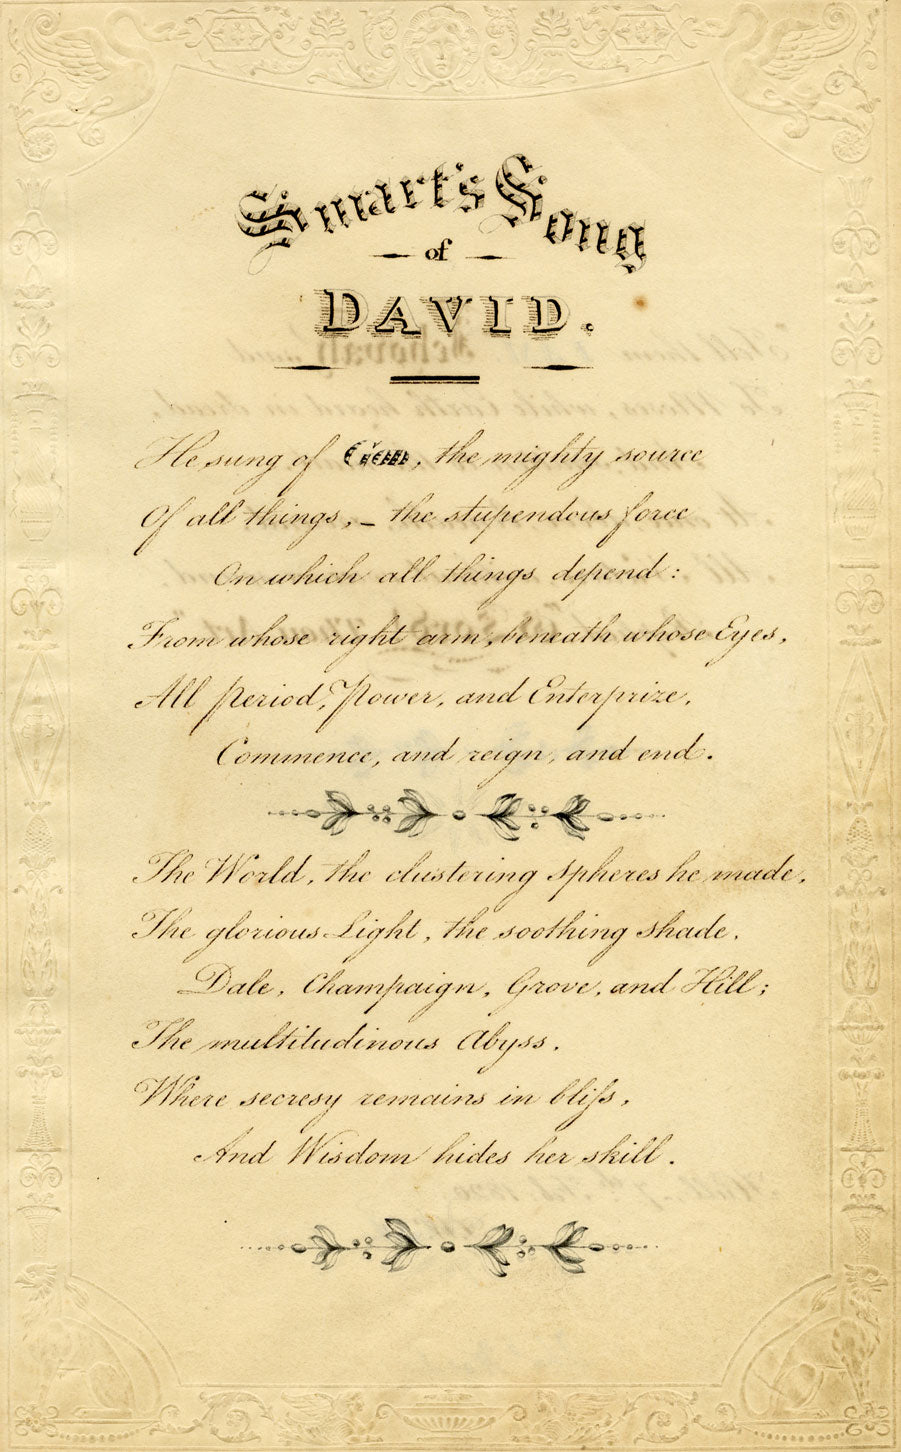 Smart's Song
of
DAVID.
He sung of God, the mighty source
Of all things, – the stupendous force
On which all things depend:
From whose right arm, beneath whose Eyes,
All Period, Power, and Enterprize,
Commence, and reign, and end.
The World, the clustering spheres he made,
The glorious Light, the soothing shade,
Dale, Champaign, Grove, and Hill;
The multitudinous Abyss,
Where secresy remains in bliſs,
And Wisdom hides her skill.